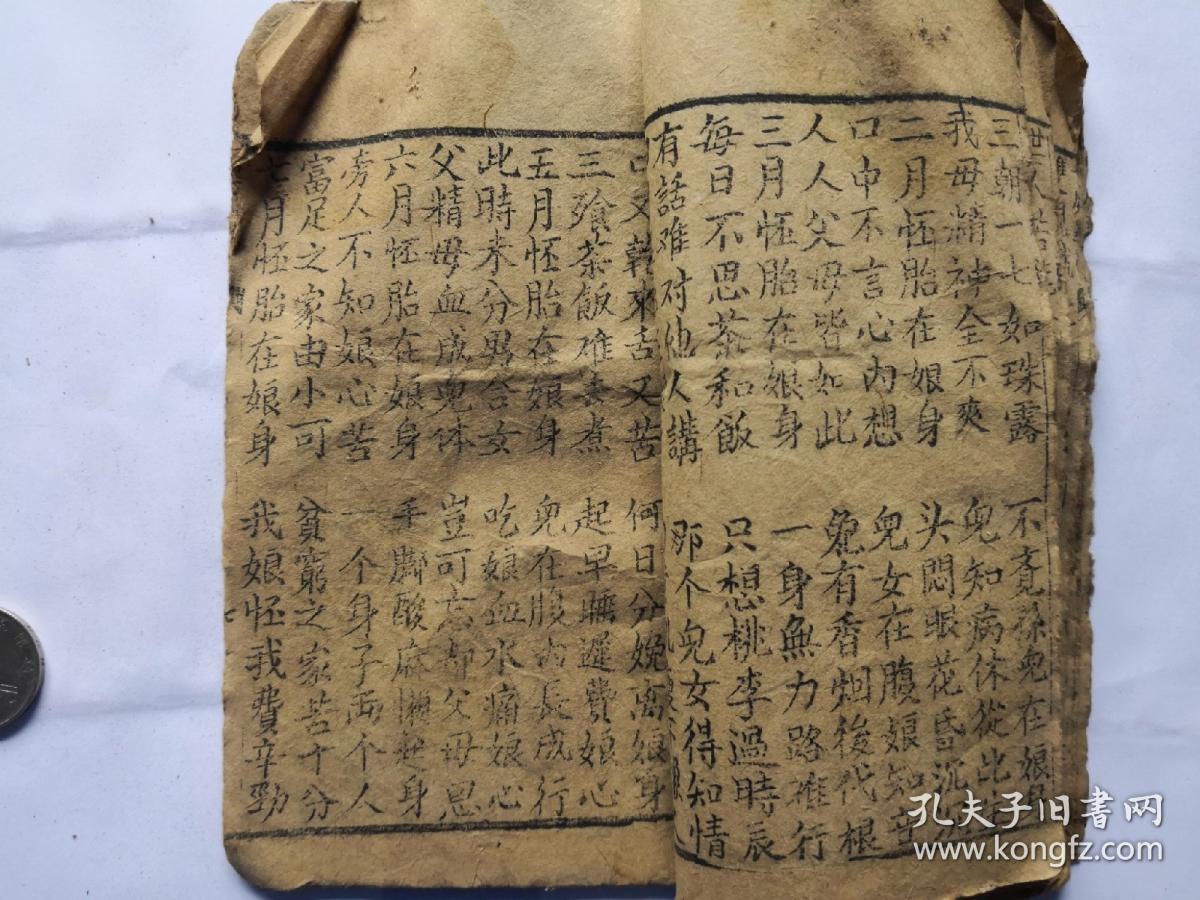 三朝一七如珠露 不竟孫兒在娘
我母精神全不爽 兒知病体從比
二月怀胎在娘身 头悶眼花昏沉
口中不言心內想 兒女在腹娘知
人人父母皆如此 兔有香烟後代根
三月怀胎在娘身 一身無力路难行
每日不思茶和飯 只想桃李過時辰
有話难对他人講 那个兒女得知情
口又乾來舌又苦 何日分娩离娘身
三飧茶飯难去煮 起早睡遲費娘心
五月怀胎在娘身 兒在腹内長成行
此時未分男合女 吃娘血水痛娘心
父精母血成兒体 豈可忘却父母恩
六月怀胎在娘身 手脚酸麻懒起身
旁人不知娘心苦 一个身子両个人
富足之家由小可 貧窮之家苦十分
七月怀胎在娘身 我娘怀我費辛勁
孔夫子旧书网
www.kongfz.com